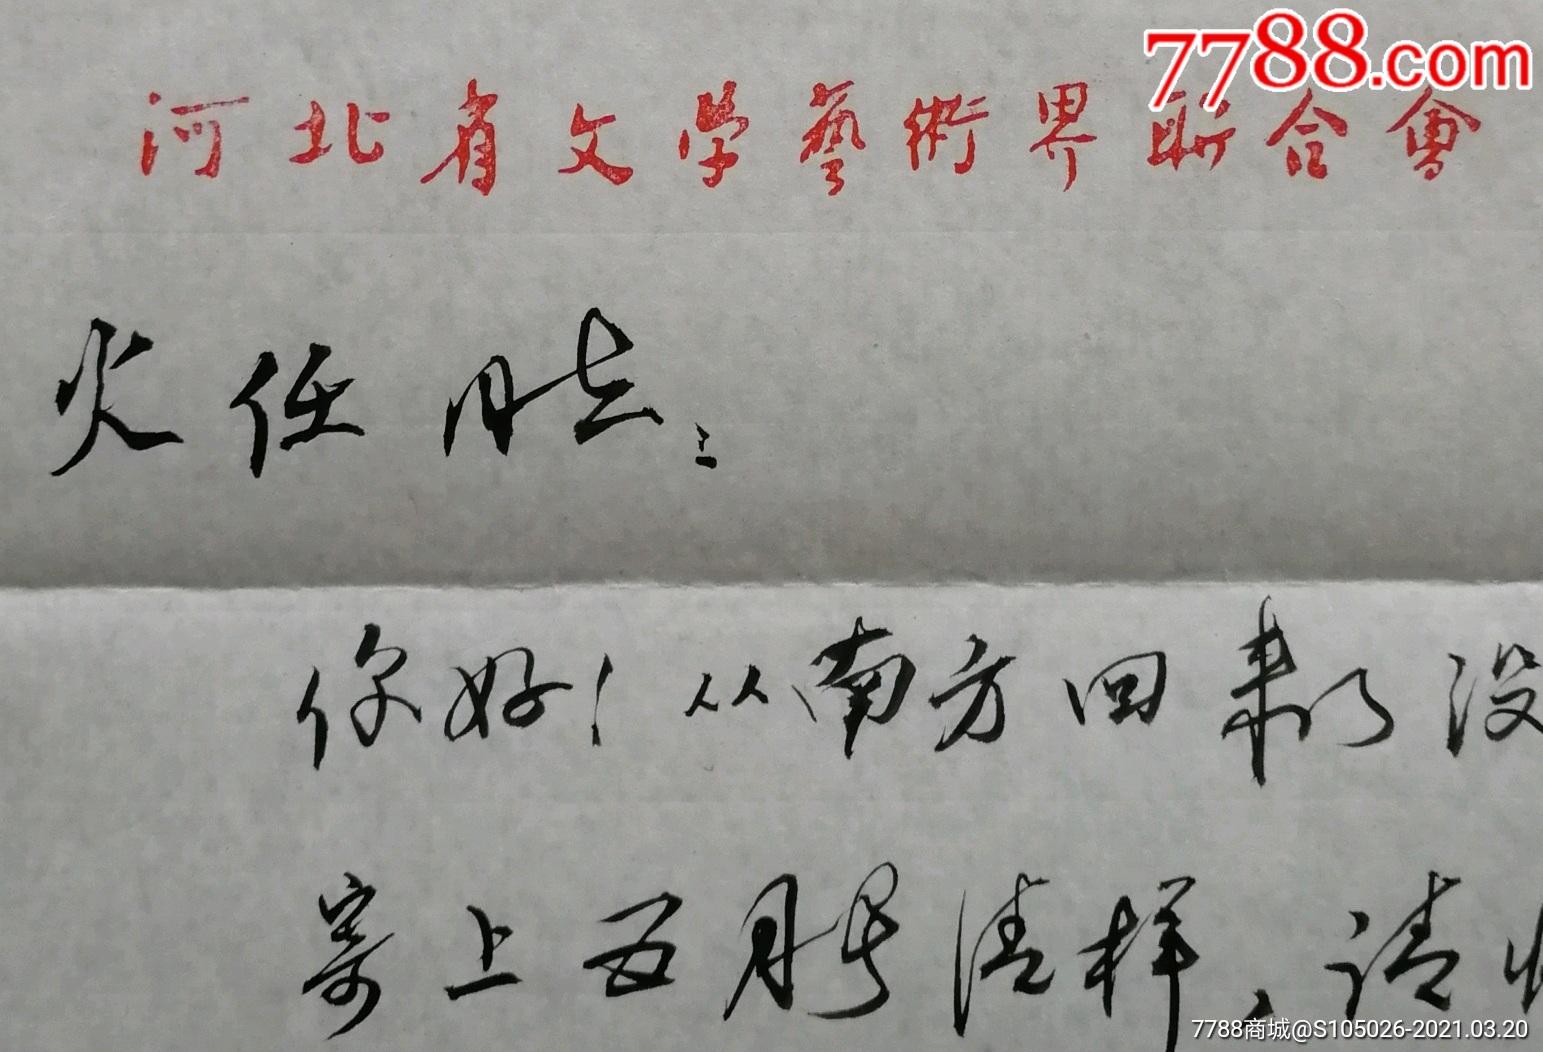 7788.com
河北省文學藝術界联合會
火任同志：
你好！从南方回来了没
寄上五月号清样，请收
7788商城@S105026-2021.03.20